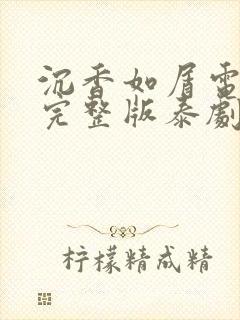 沉香如屑電
完整版泰劇
柠檬精成精